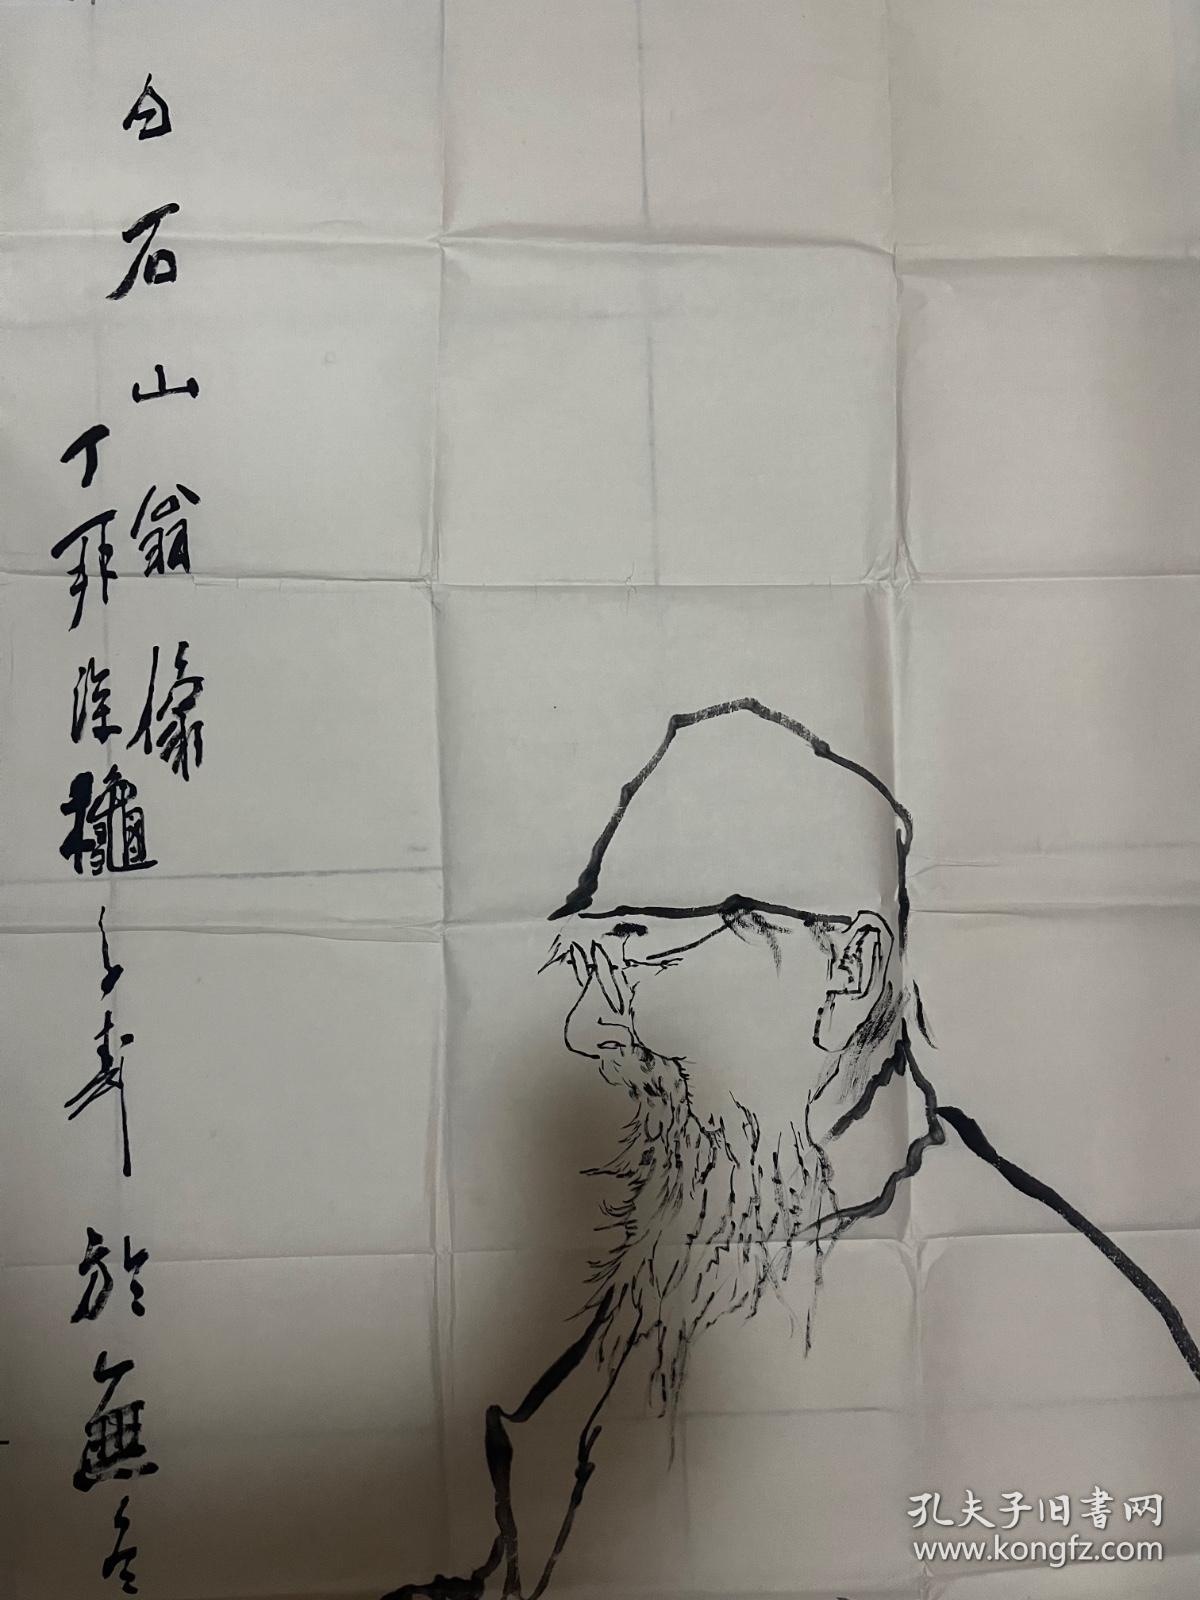 白石山翁像
丁邜深龝
寿於無
孔夫子旧书网
www.kongfz.com